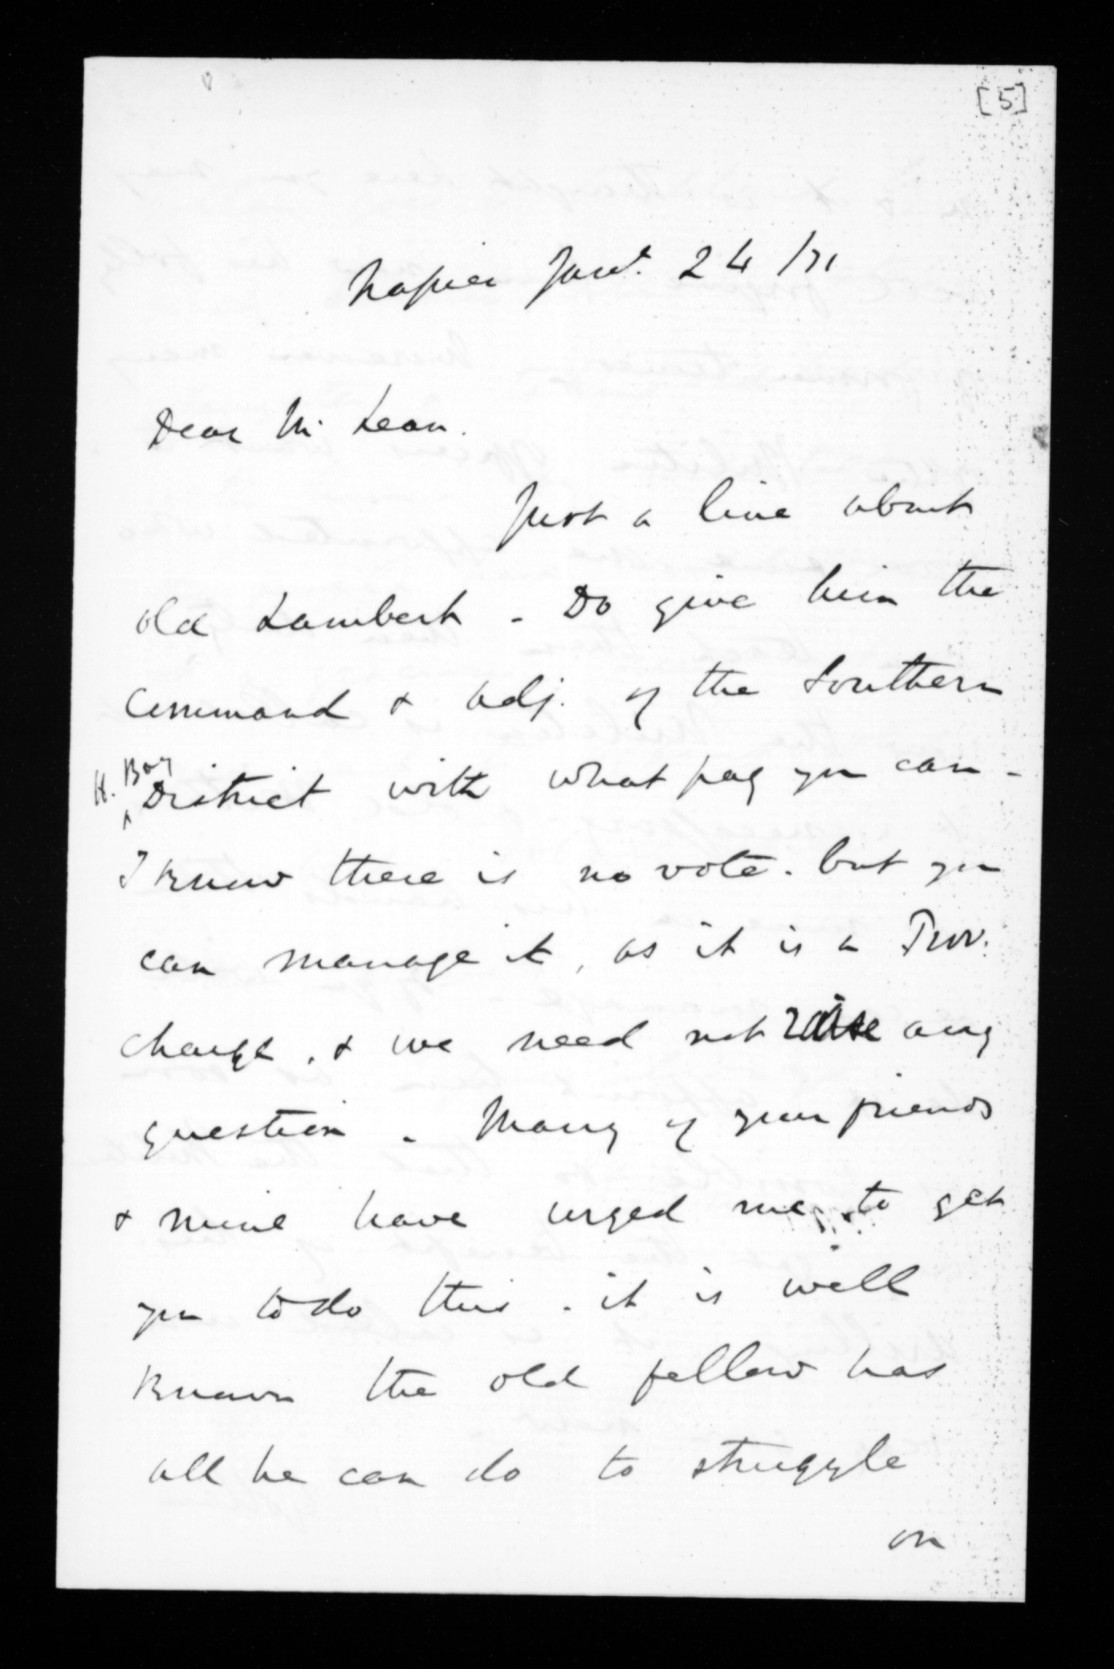 [5]
Napier Jany. 24 /71
Dear McLean.
Just a line about
old Lambert - Do give him the
command & adj. of the Southern
H. Bay
District with what pay you can -
I know there is no vote. but you
can manage it, as it is a Prov.
charge, & we need not raise any
question - Many of your friends
& mine have urged me to get
you to do this. it is well
known the old fellow has
all he can do to struggle
on